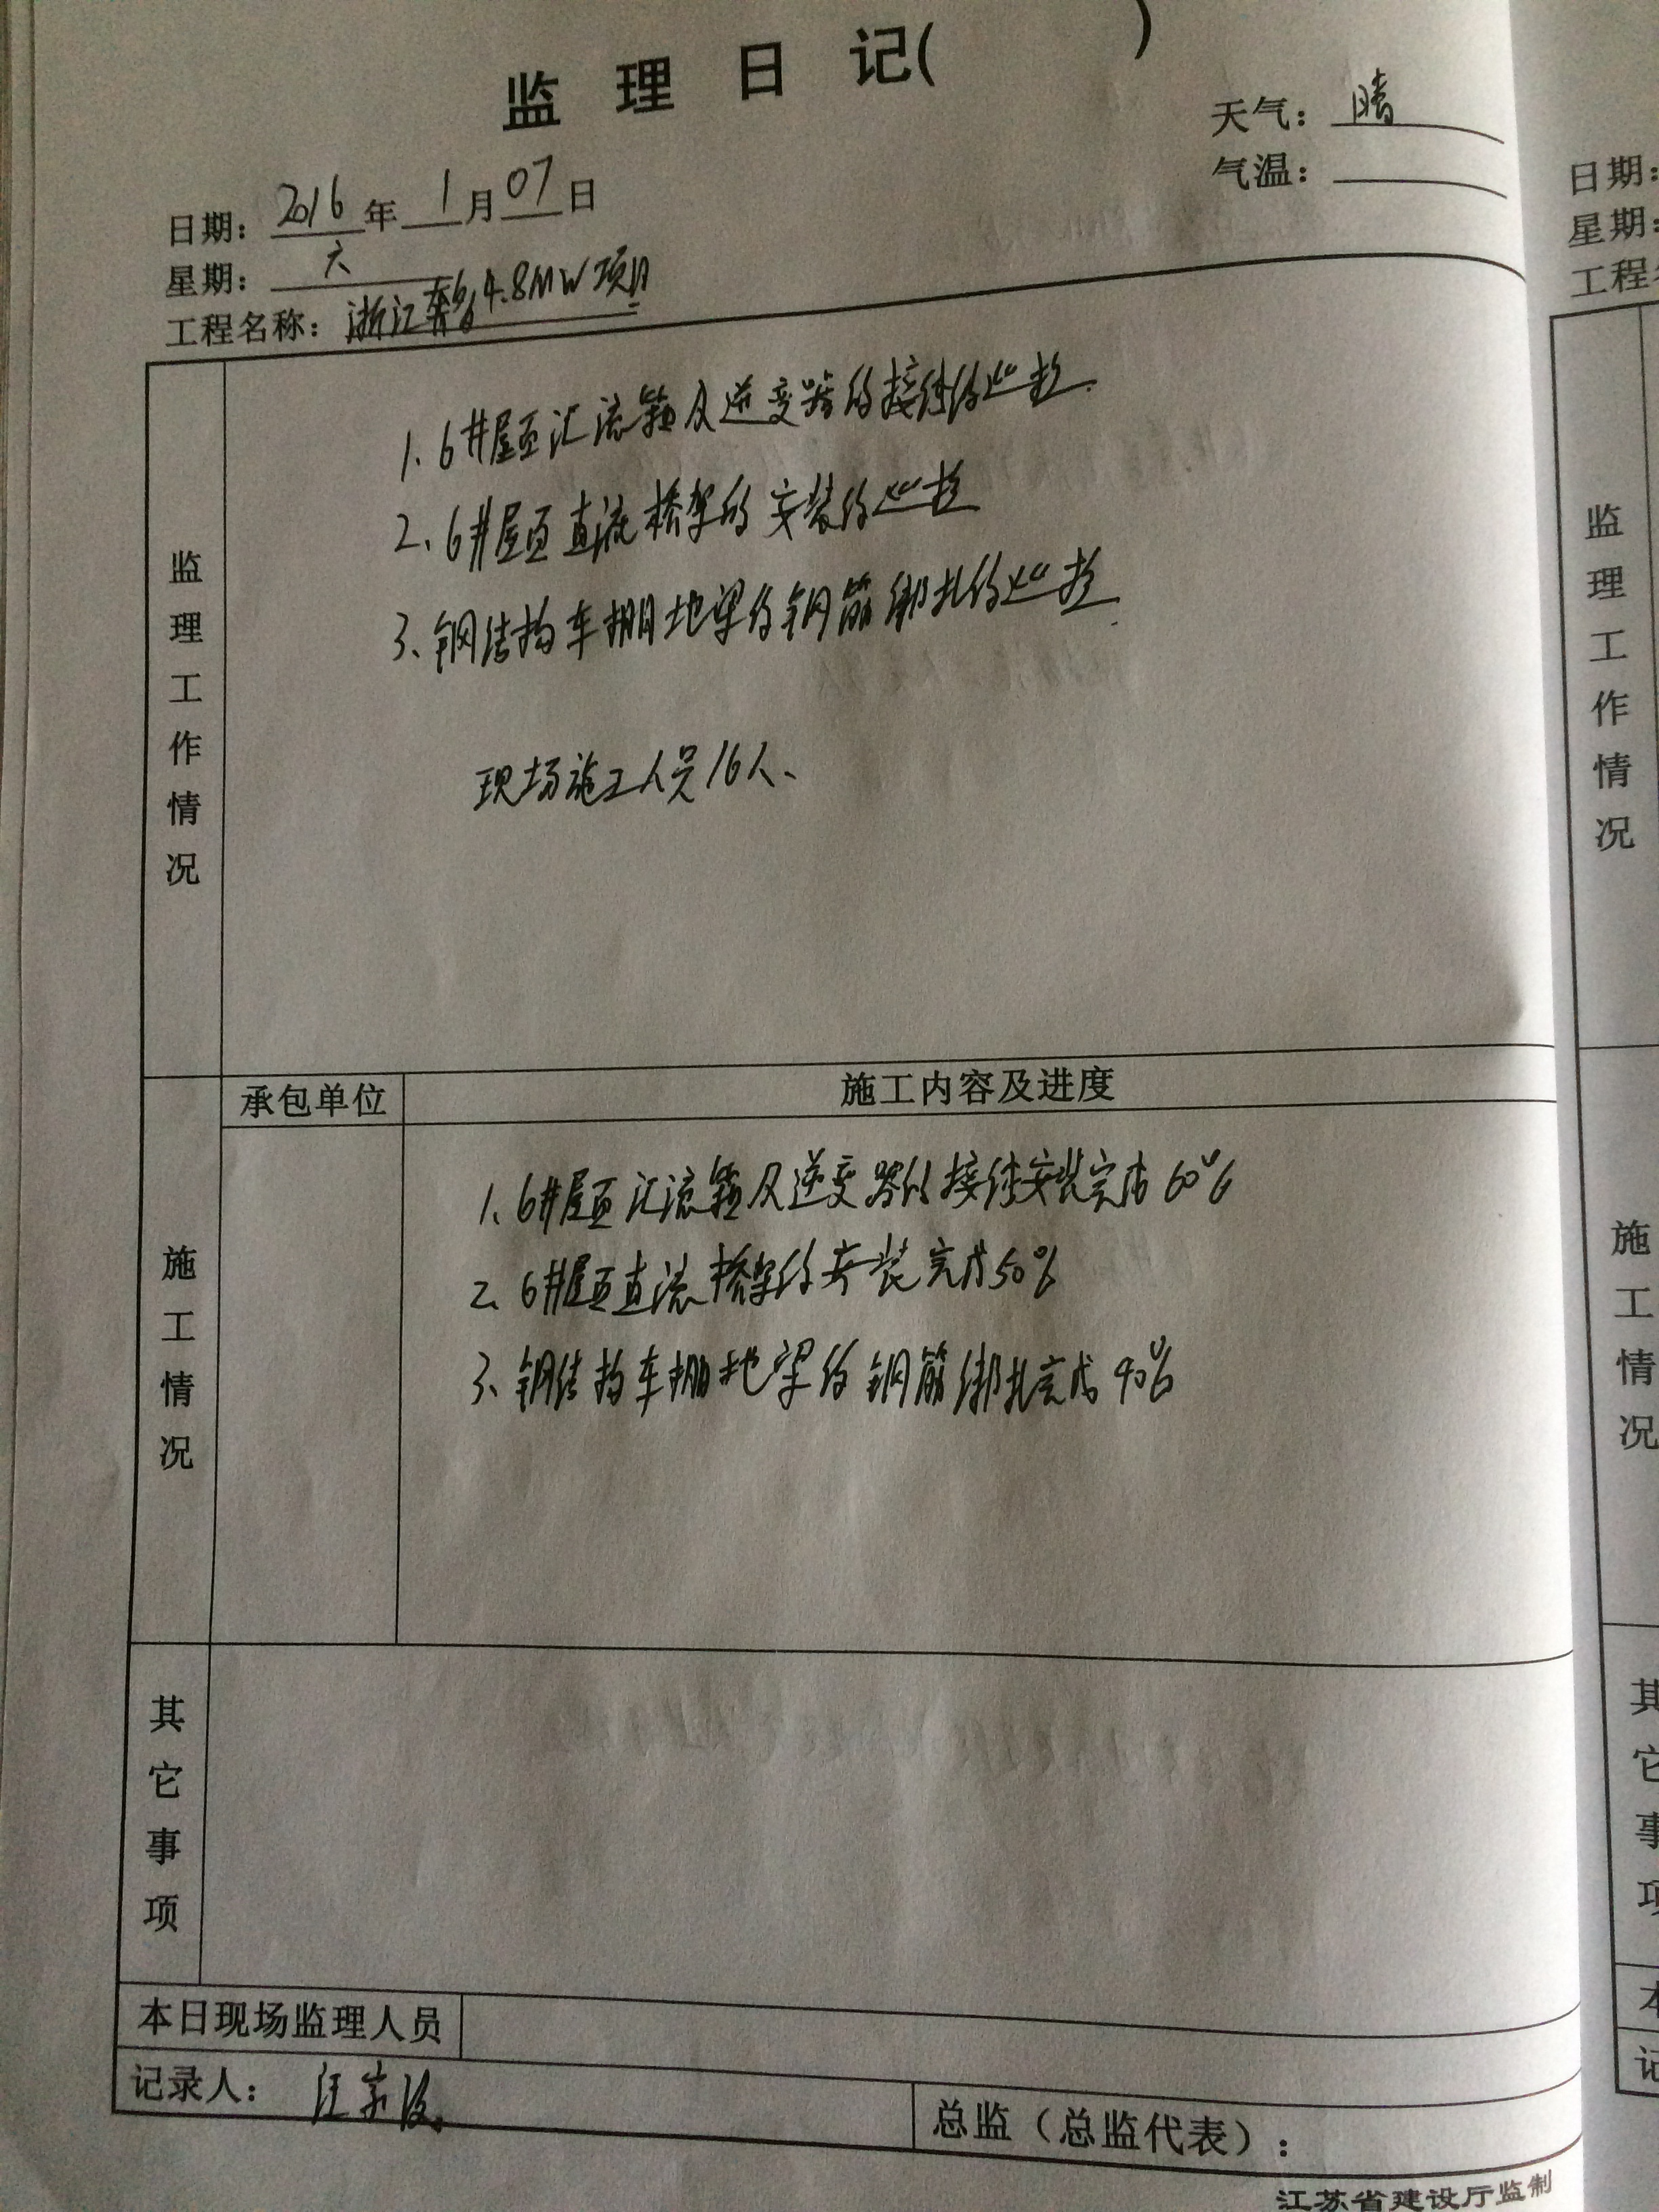 监理日记( )
天气：晴
气温：
日期：2016年1月07日
星期：六
工程名称：浙江4.8MW项目
监理工作情况
1、6#屋面汇流箱及逆变器的接线的巡检.
2、6#屋面直流桥架的安装的巡检
3、钢结构车棚地梁的钢筋绑扎的巡检.
现场施工人员16人、
承包单位
施工内容及进度
施工情况
1、6#屋面汇流箱及逆变器的接线安装完成60%
2、6#屋面直流桥架的安装完成50%
3、钢结构车棚地梁的钢筋绑扎完成40%
其它事项
本日现场监理人员
记录人：汪
总监（总监代表）：
江苏省建设厅监制
日期：
星期：
工程
监理工作情况
施工情况
其它事项
本
记